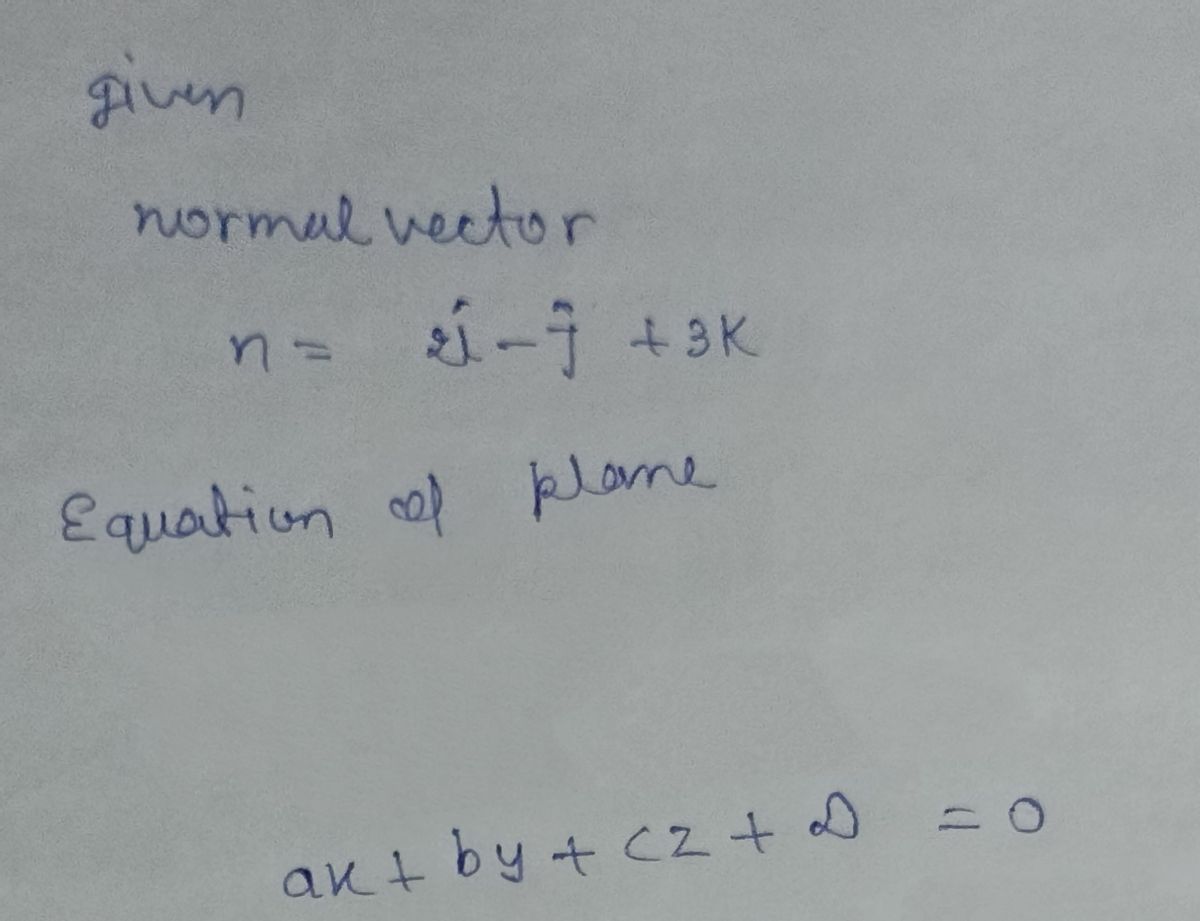 given
normal vector
n = 2î - ĵ + 3k
Equation of plane
ax + by + cz + D = 0